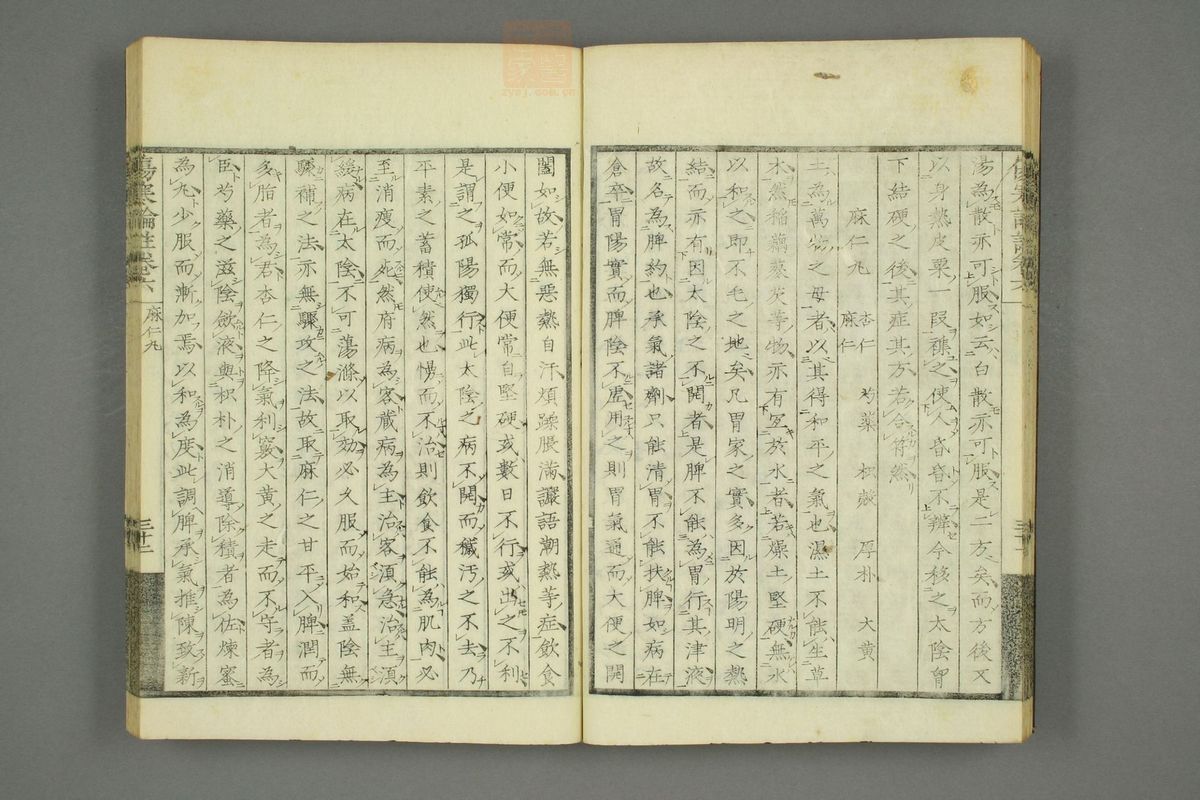 湯為散亦可服如云白散亦可服是二方矣而方後又
以身熱皮粟一段雜之使人昏昏不辨今移之太陰胷
下結硬之後其症其方若合符然
麻仁丸 杏仁 芍藥 枳殼 厚朴 大黄
麻仁
土為萬物之母者以其得和平之氣也濕土不能生草
木然稻藕菱芡等物亦有宜於水者若燥土堅硬無水
以和之即不毛之地矣凡胃家之實多因於陽明之熱
結而亦有因太陰之不開者是脾不能為胃行其津液
故名為脾約也承氣諸劑只能清胃不能扶脾如病在
倉卒胃陽實而脾陰不虛用之則胃氣通而大便之開
闔如故若無惡熱自汗煩躁脹滿讝語潮熱等症飲食
小便如常而大便常自堅硬或數日不行或出之不利
是謂之孤陽獨行此太陰之病不開而穢汚之不去乃
平素之蓄積使然也慢而不治則飲食不能為肌肉必
至消瘦而死然府病為客藏病為主治客須急治主須
緩病在太陰不可蕩滌以取効必久服而始和盖陰無
驟補之法亦無驟攻之法故取麻仁之甘平入脾潤而
多脂者為君杏仁之降氣利竅大黄之走而不守者為
臣芍藥之滋陰歛液與枳朴之消導除積者為佐煉蜜
為丸少服而漸加焉以和為度此調脾承氣推陳致新
傷寒論註卷六 麻仁丸
三十二
zysj.com.cn